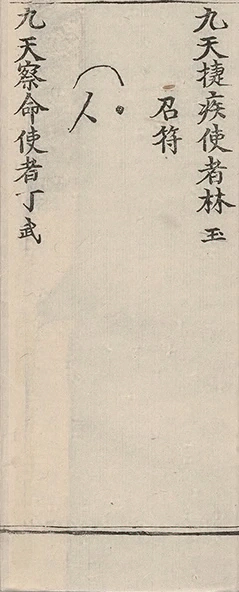 九天捷疾使者林玉
召符
人
九天察命使者丁武